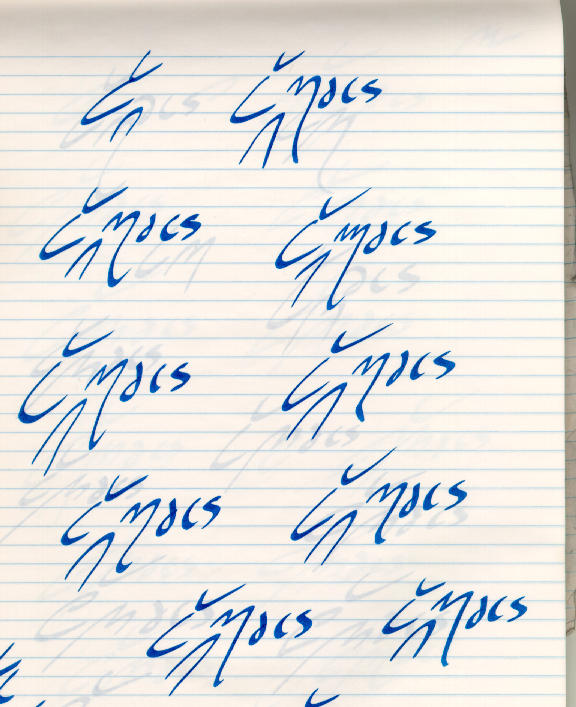 E Emacs
Emacs Emacs
Emacs Emacs
Emacs Emacs
Emacs Emacs